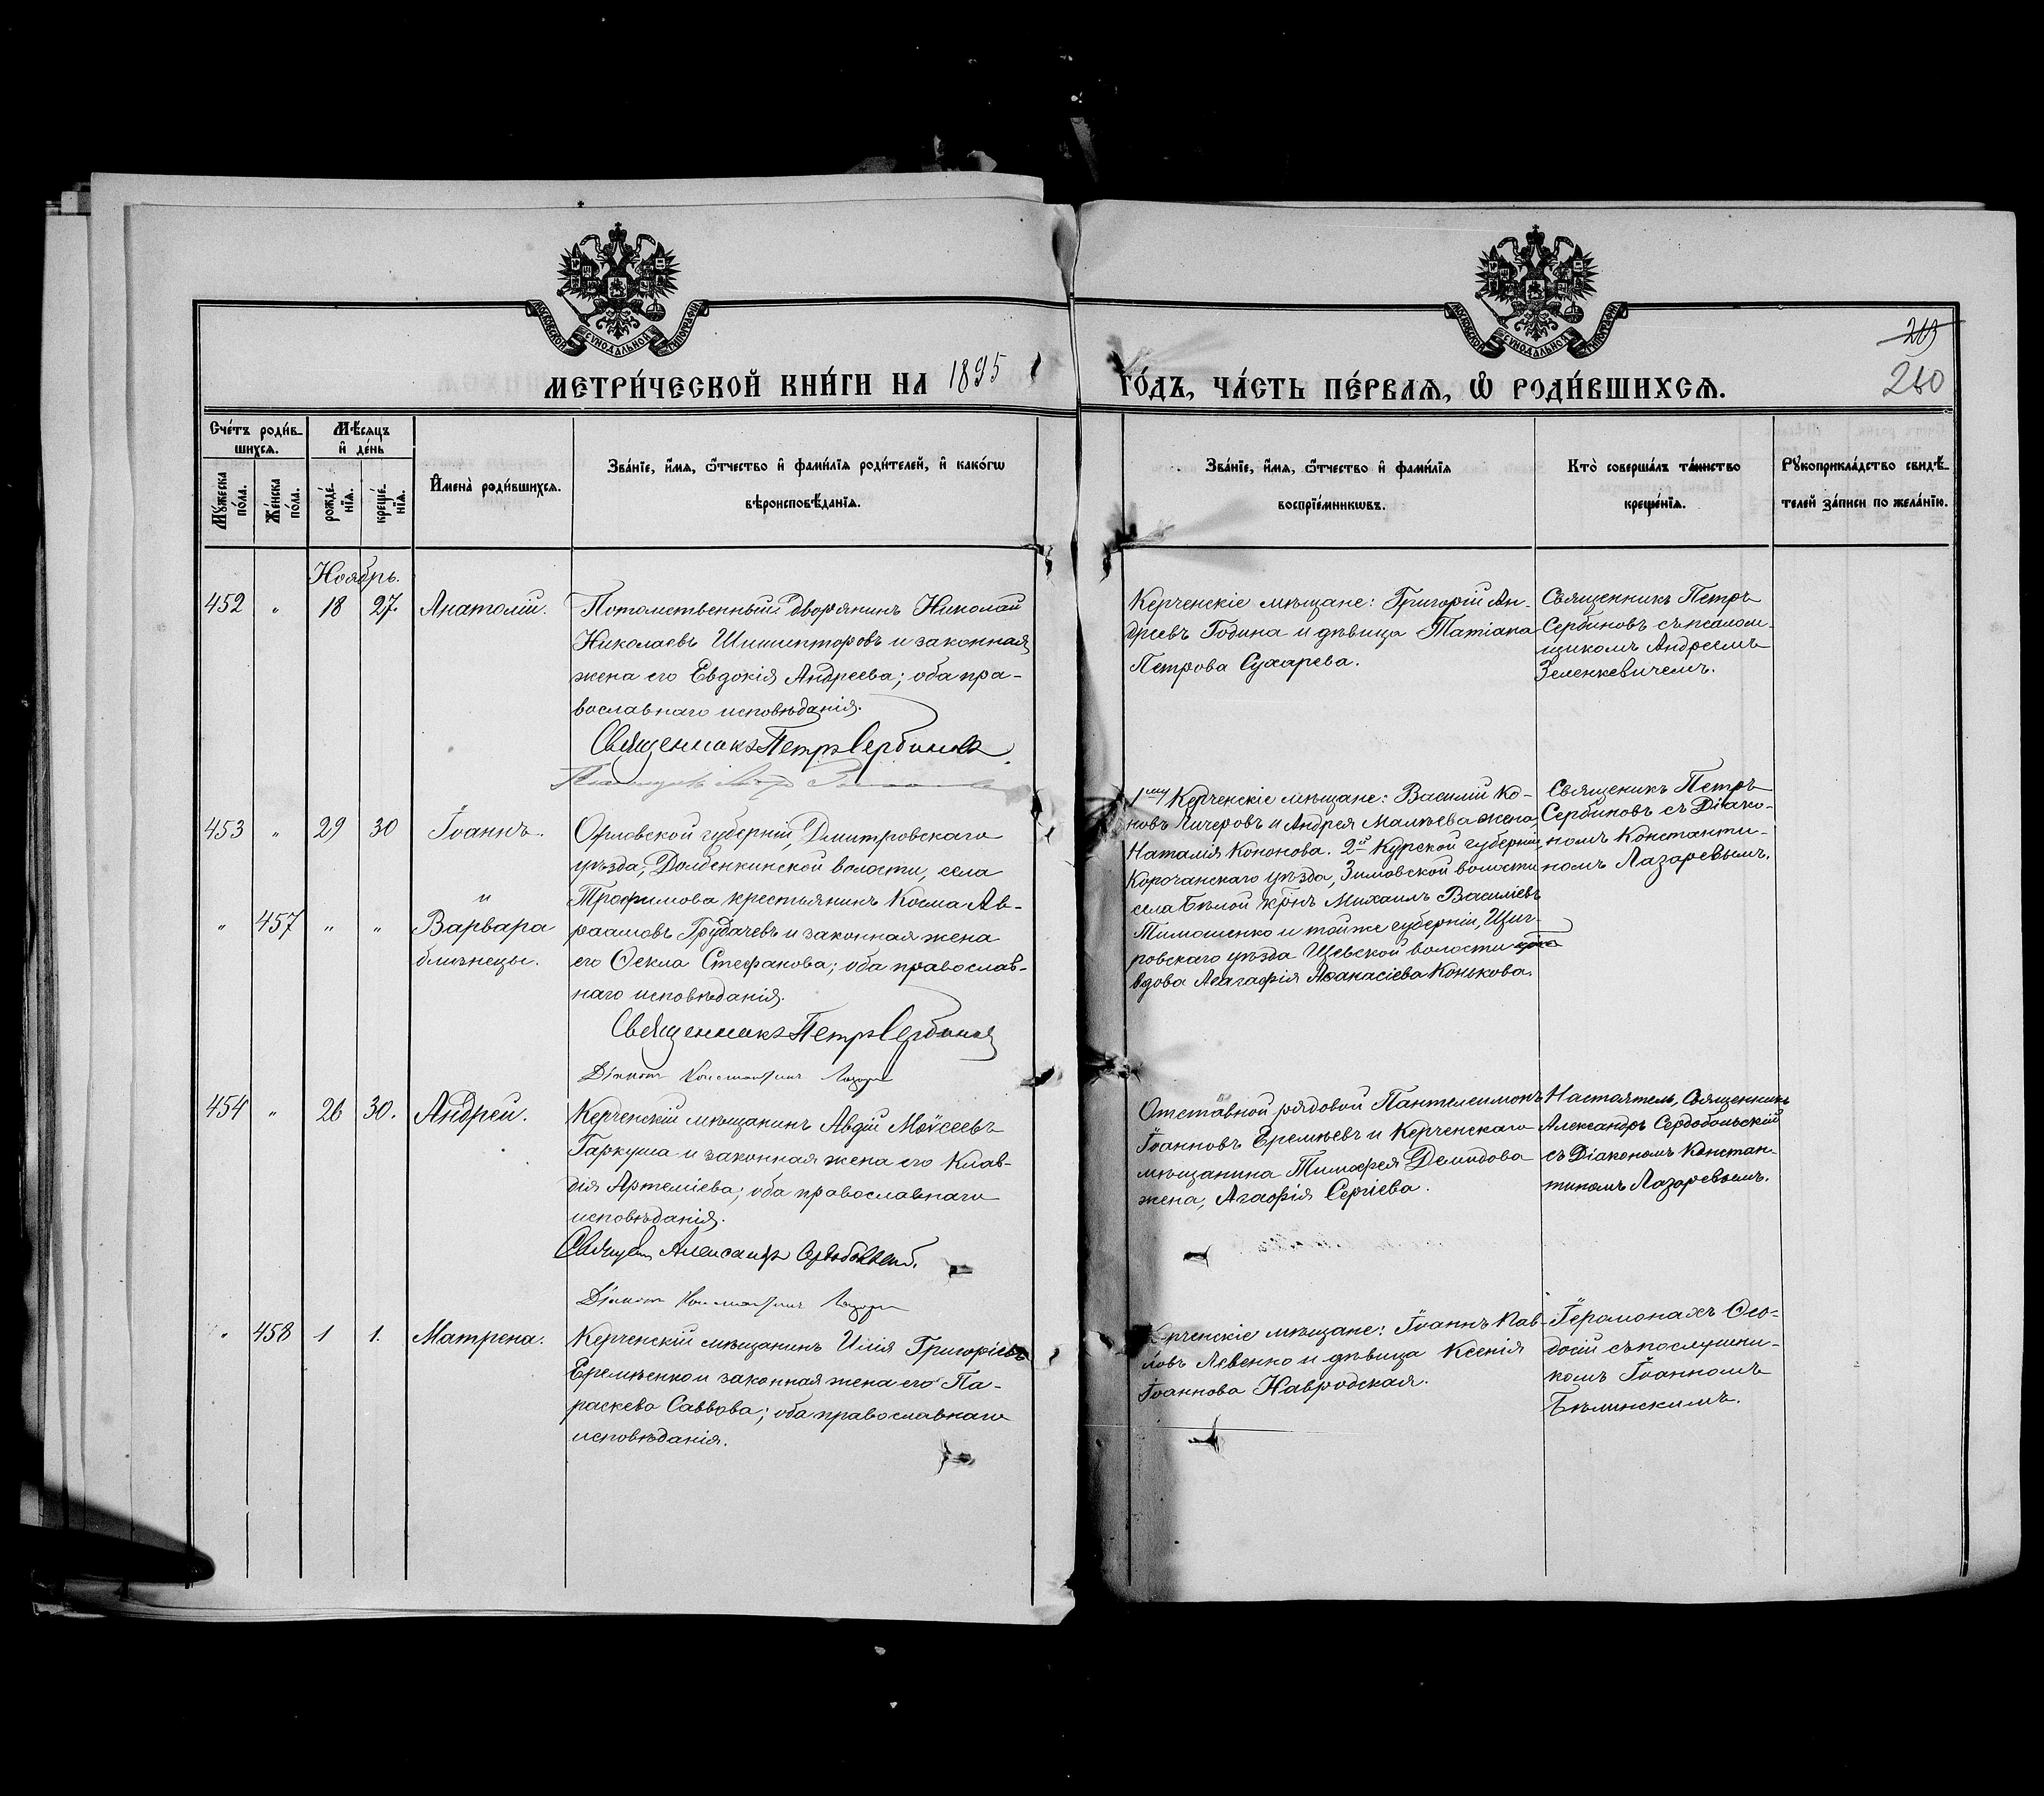 МОСКОВСКОЙ СѴНОДАЛЬНОЙ ТИПОГРАФІИ
МОСКОВСКОЙ СѴНОДАЛЬНОЙ ТИПОГРАФІИ
МЕТРИ́ЧЕСКОЙ КНИ́ГИ НА 1895
ГО́ДЪ, ЧА́СТЬ ПЕ́РВАѦ, Ѡ҆ РОДИ́ВШИХСѦ.
269
260
Сче́тъ роди́в-
шихсѧ.
Мѣ́сѧцъ
и҆ де́нь
Мꙋ́жеска
по́ла.
Же́нска
по́ла.
рожде́-
нїѧ.
креще́-
нїѧ.
И҆мена̀ роди́вшихсѧ.
Зва́нїе, и҆́мѧ, ѻ҆́тчество и҆ фамі́лїѧ роди́телей, и҆ како́гѡ
вѣроисповѣ́данїѧ.
Зва́нїе, и҆́мѧ, ѻ҆́тчество и҆ фамі́лїѧ
воспрїе́мникѡвъ.
Кто̀ соверша́лъ та́инство
креще́нїѧ.
Рꙋкоприкла́дство свидѣ́-
телей за́писи по жела́нїю.
Ноябрь.
452 " 18 27. Анатолій.
Потомственный дворянинъ Николай
Николаевъ Шишипторовъ и законная
жена его Евдокія Андреева; оба пра-
вославнаго исповѣданія.
Священникъ Петръ Сербиновъ
Керченскіе мѣщане: Григорій Ан-
дреевъ Година и дѣвица Татіана
Петрова Сухарева.
Священникъ Петръ
Сербиновъ съ псалом-
щикомъ Андреемъ
Зеленкевичемъ.
453 " 29 30 Іоаннъ.
и
" 457 " " Варвара
близнецы.
Орловской губерніи, Дмитровскаго
уѣзда, Долбенкинской волости, села
Трофимова крестьянинъ Косма Ав-
раамовъ Грудачевъ и законная жена
его Ѳекла Стефанова; оба православ-
наго исповѣданія.
Священникъ Петръ Сербиновъ
Діаконъ Константинъ Лазаревъ
1му Керченскіе мѣщане: Василій Ко-
новъ Чичеровъ и Андрея Малѣева жена,
Наталія Кононова. 2й Курской губерніи
Корочанскаго уѣзда, Зимовской волости
села Бѣлой крнъ Михаилъ Василіевъ
Тимошенко и тойже губерніи, Щиг-
ровскаго уѣзда волости
вдова Агафія Аѳанасіева Конькова.
Священикъ Петръ
Сербиновъ съ Діако-
номъ Константи-
номъ Лазаревымъ.
454 " 26 30. Андрей.
Керченскій мѣщанинъ Авдій Моѵсеевъ
Гаркуша и законная жена его Клав-
дія Артеміева; оба православнаго
исповѣданія.
Священ Александръ Сердобольскій.
Діаконъ Константинъ Лазаревъ
Отставной рядовой Пантелеимонъ
Іоанновъ Еремѣевъ и Керченскаго
мѣщанина Тимофея Демидова
жена, Агафія Сергіева.
Настоятель, Священникъ
Александръ Сердобольскій
съ Діакономъ Констан-
тиномъ Лазаревымъ.
" 458 1 1. Матрена.
Керченскій мѣщанинъ Илія Григоріевъ
Еремѣенко и законная жена его Па-
раскева Саввова; оба православнаго
исповѣданія.
Керченскіе мѣщане: Іоаннъ Пав-
ловъ Левенко и дѣвица Ксенія
Іоаннова Навродская.
Іеромонахъ Ѳео-
досій съ послушни-
комъ Іоанномъ
Бѣлинскимъ.